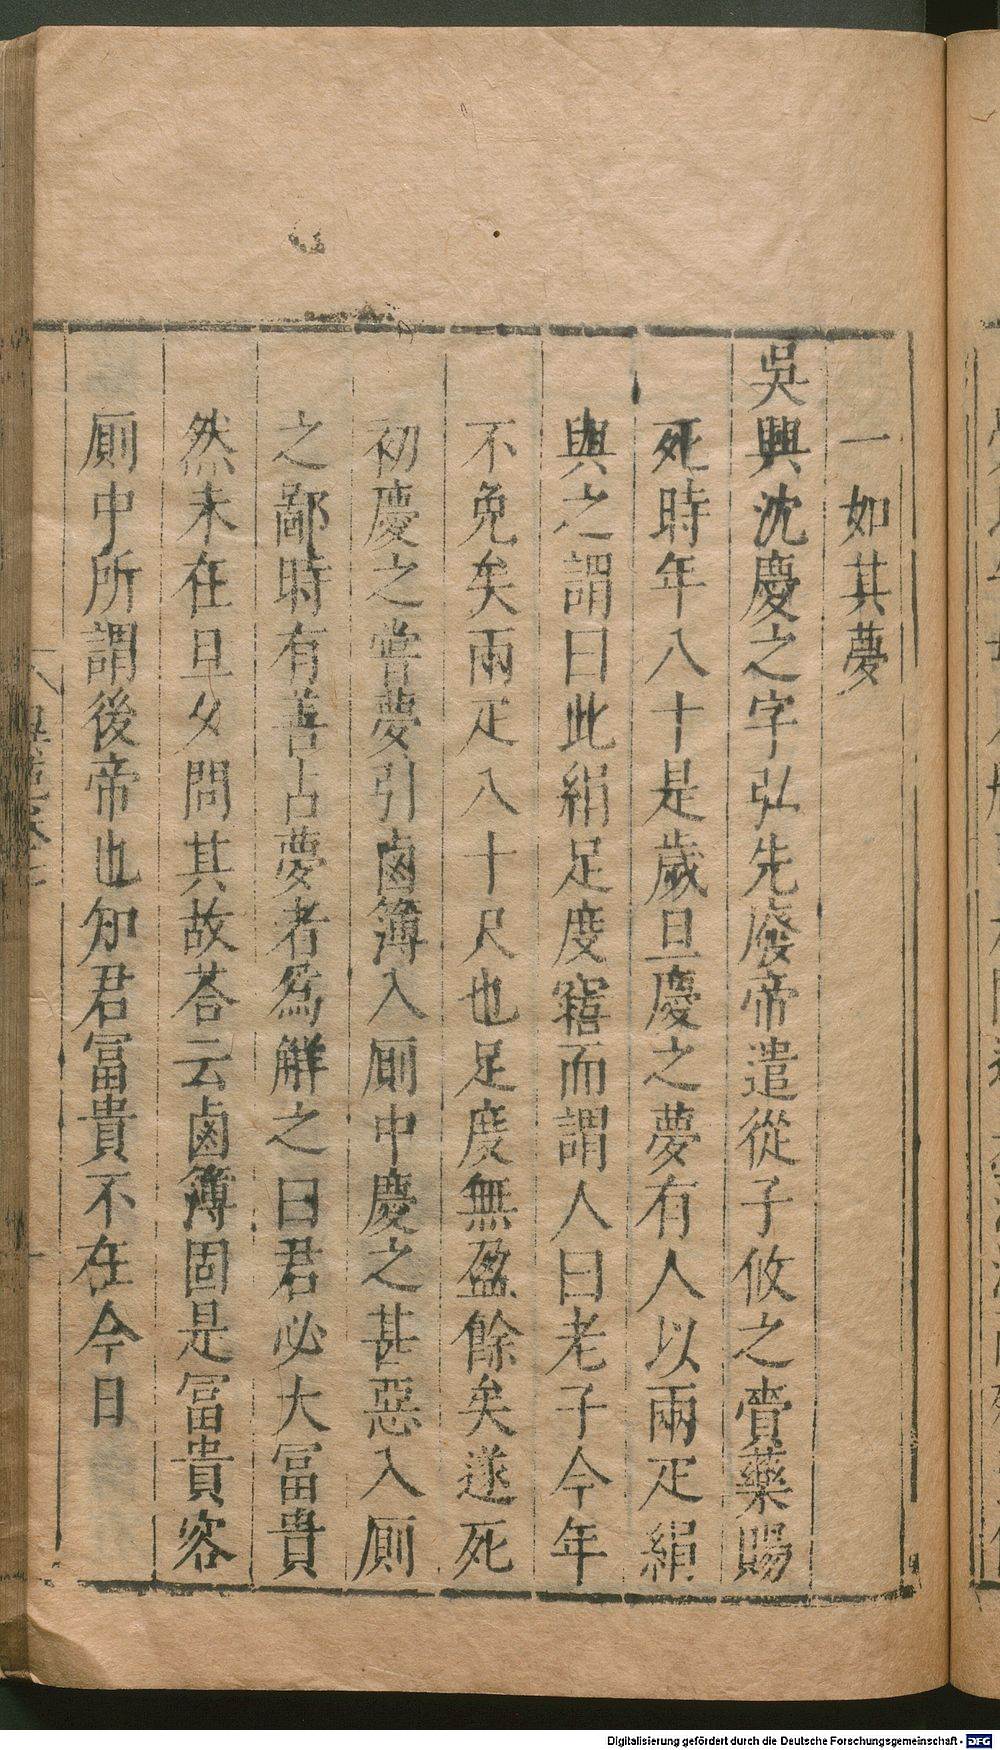 一如其夢
吳興沈慶之字弘先廢帝遣從子攸之賫藥賜
死時年八十是歲旦慶之夢有人以兩疋絹
與之謂曰此絹足度寤而謂人曰老子今年
不免矣兩疋八十尺也足度無盈餘矣遂死
初慶之嘗夢引鹵簿入厠中慶之甚惡入厠
之鄙時有善占夢者爲解之曰君必大冨貴
然未在旦夕問其故荅云鹵簿固是冨貴容
厠中所謂後帝也知君冨貴不在今日
Digitalisierung gefördert durch die Deutsche Forschungsgemeinschaft - DFG